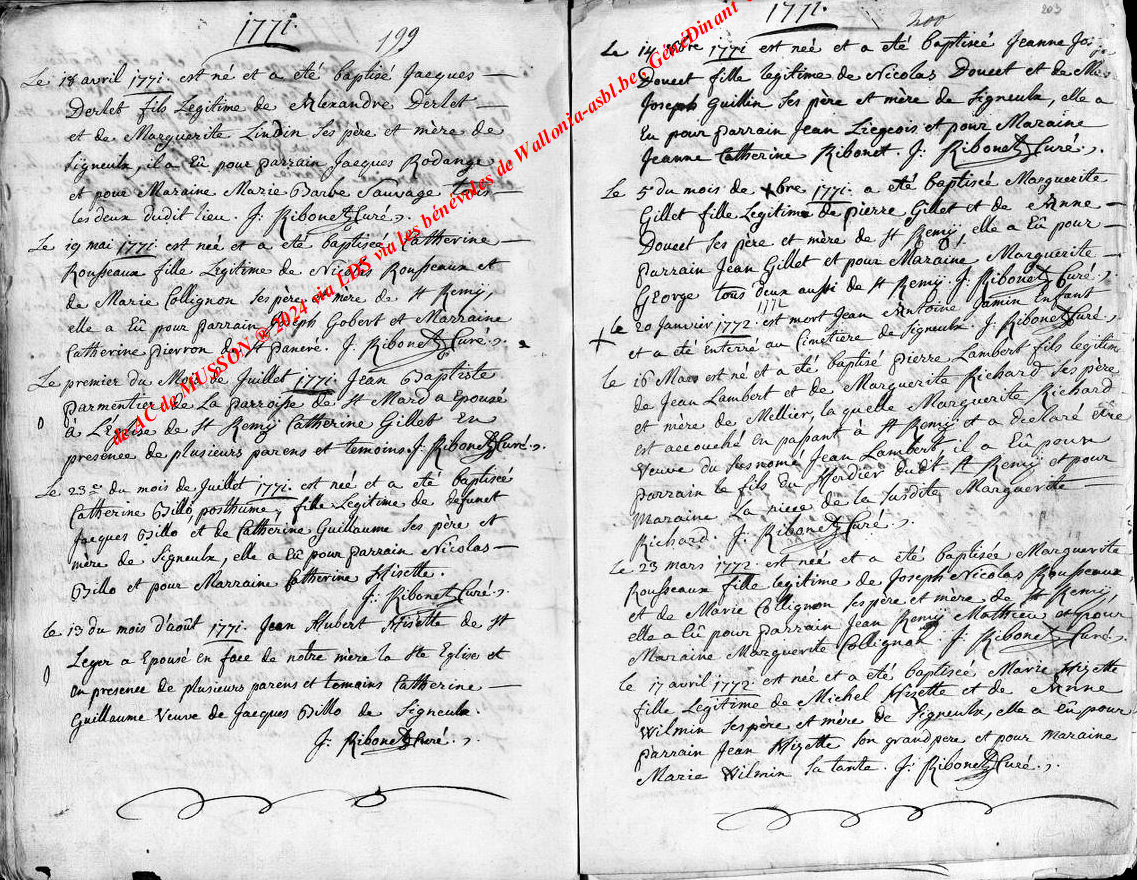 1771.
199
Le 18 avril 1771. est né et a été baptisé Jacques
Derlet fils Legitime de Alexandre Derlet
et de Marguerite Lindin ses père et mère de
Signeulx, il a Eû pour parrain Jacques Rodange
et pour Maraine Marie Barbe Sauvage tous
les deux dudit lieu. J: Ribonet Curé.
Le 19 mai 1771. est neé et a été baptisée Catherine
Rousseaux fille Legitime de Nicolas Rousseaux et
de Marie Collignon ses père et mere de St Remÿ,
elle a Eû pour parrain Joseph Gobert et Marraine
Catherine pierron de St Pancré. J. Ribonet Curé.
Le premier du Mois de Juillet 1771. Jean Baptiste
parmentier de La parroisse de St Mard a Epousé
à L'Eglise de St Remÿ Catherine Gillet En
presence de plusieurs parens et temoins. J. Ribonet Curé.
Le 23e du mois de Juillet 1771. est neé et a été baptisée
Catherine Billo, posthume, fille Legitime de defunct
Jacques Billo et de Catherine Guillaume ses père et
mère de Signeulx, elle a Eû pour parrain Nicolas
Billo et pour Marraine Catherine Hisette.
J: Ribonet Curé.
Le 13 du mois d'août 1771. Jean Hubert Hisette de St
Leger a Epousé en face de notre mere la Ste Eglise et
en presence de plusieurs parens et temoins Catherine
Guillaume Veuve de Jacques Billo de Signeulx.
J: Ribonet Curé.
1771.
200
203
Le 14 1771 est neé et a été baptisée Jeanne
Doucet fille legitime de Nicolas Doucet et de
Joseph Guillin ses père et mère de Signeulx, elle a
Eu pour parrain Jean Liegeois et pour Maraine
Jeanne Catherine Ribonet. J: Ribonet Curé.
Le 5 du mois de Xbre 1771. a été baptisée Marguerite
Gillet fille Legitime de pierre Gillet et de Anne
Doucet ses père et mère de St Remÿ, elle a Eû pour
parrain Jean Gillet et pour Maraine Marguerite
George tous deux aussi de St Remÿ. J. Ribonet Curé.
1772
Le 20 Janvier 1772. est mort Jean Antoine Jamin Enfant
et a été enterré au Cimetière de Signeulx. J. Ribonet Curé.
Le 16 Mars est né et a été baptisé pierre Lambert fils legitim
de Jean Lambert et de Marguerite Richard ses père
et mère de Mellier, la quelle Marguerite Richard
est accouché En passant à St Remÿ et a declaré être
veuve du susnomé Jean Lambert il a Eû pour
parrain le fils du Herdier dudt St Remÿ et pour
Maraine La niece de la susdite Marguerite
Richard. J. Ribonet Curé.
Le 23 mars 1772. est neé et a été baptisée Marguerite
Rousseaux fille legitime de Joseph Nicolas Rousseaux
et de Marie Collignon ses père et mère de St Remÿ
elle a Eû pour parrain Jean Remÿ Mathieu et pour
Maraine Marguerite Collignon. J. Ribonet Curé.
Le 17 avril 1772. est neé et a été baptisée Marie Hizette
fille Legitime de Michel Hisette et de Anne
Wilmin ses père et mère de Signeulx, elle a Eu pour
parrain Jean Hizette son grand pere et pour maraine
Marie Wilmin sa tante. J: Ribonet Curé.
de AC de MUSSON @ 2024 via LDS via les bénévoles de Wallonia-asbl.be - GénéDinant